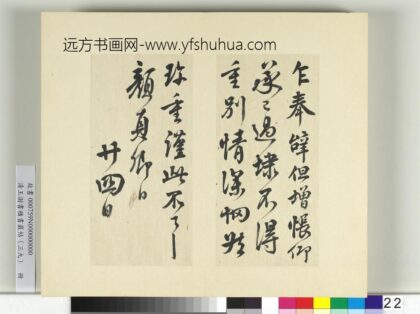 远方书画网-www.yfshuhua.com
乍奉辭但增悵仰
承已過埭不得
重別情深惘然
珍重謹此不一一
顏真卿白
廿四日
故書 000759N000000000
清王澍書積書巖帖(三九) 冊
22